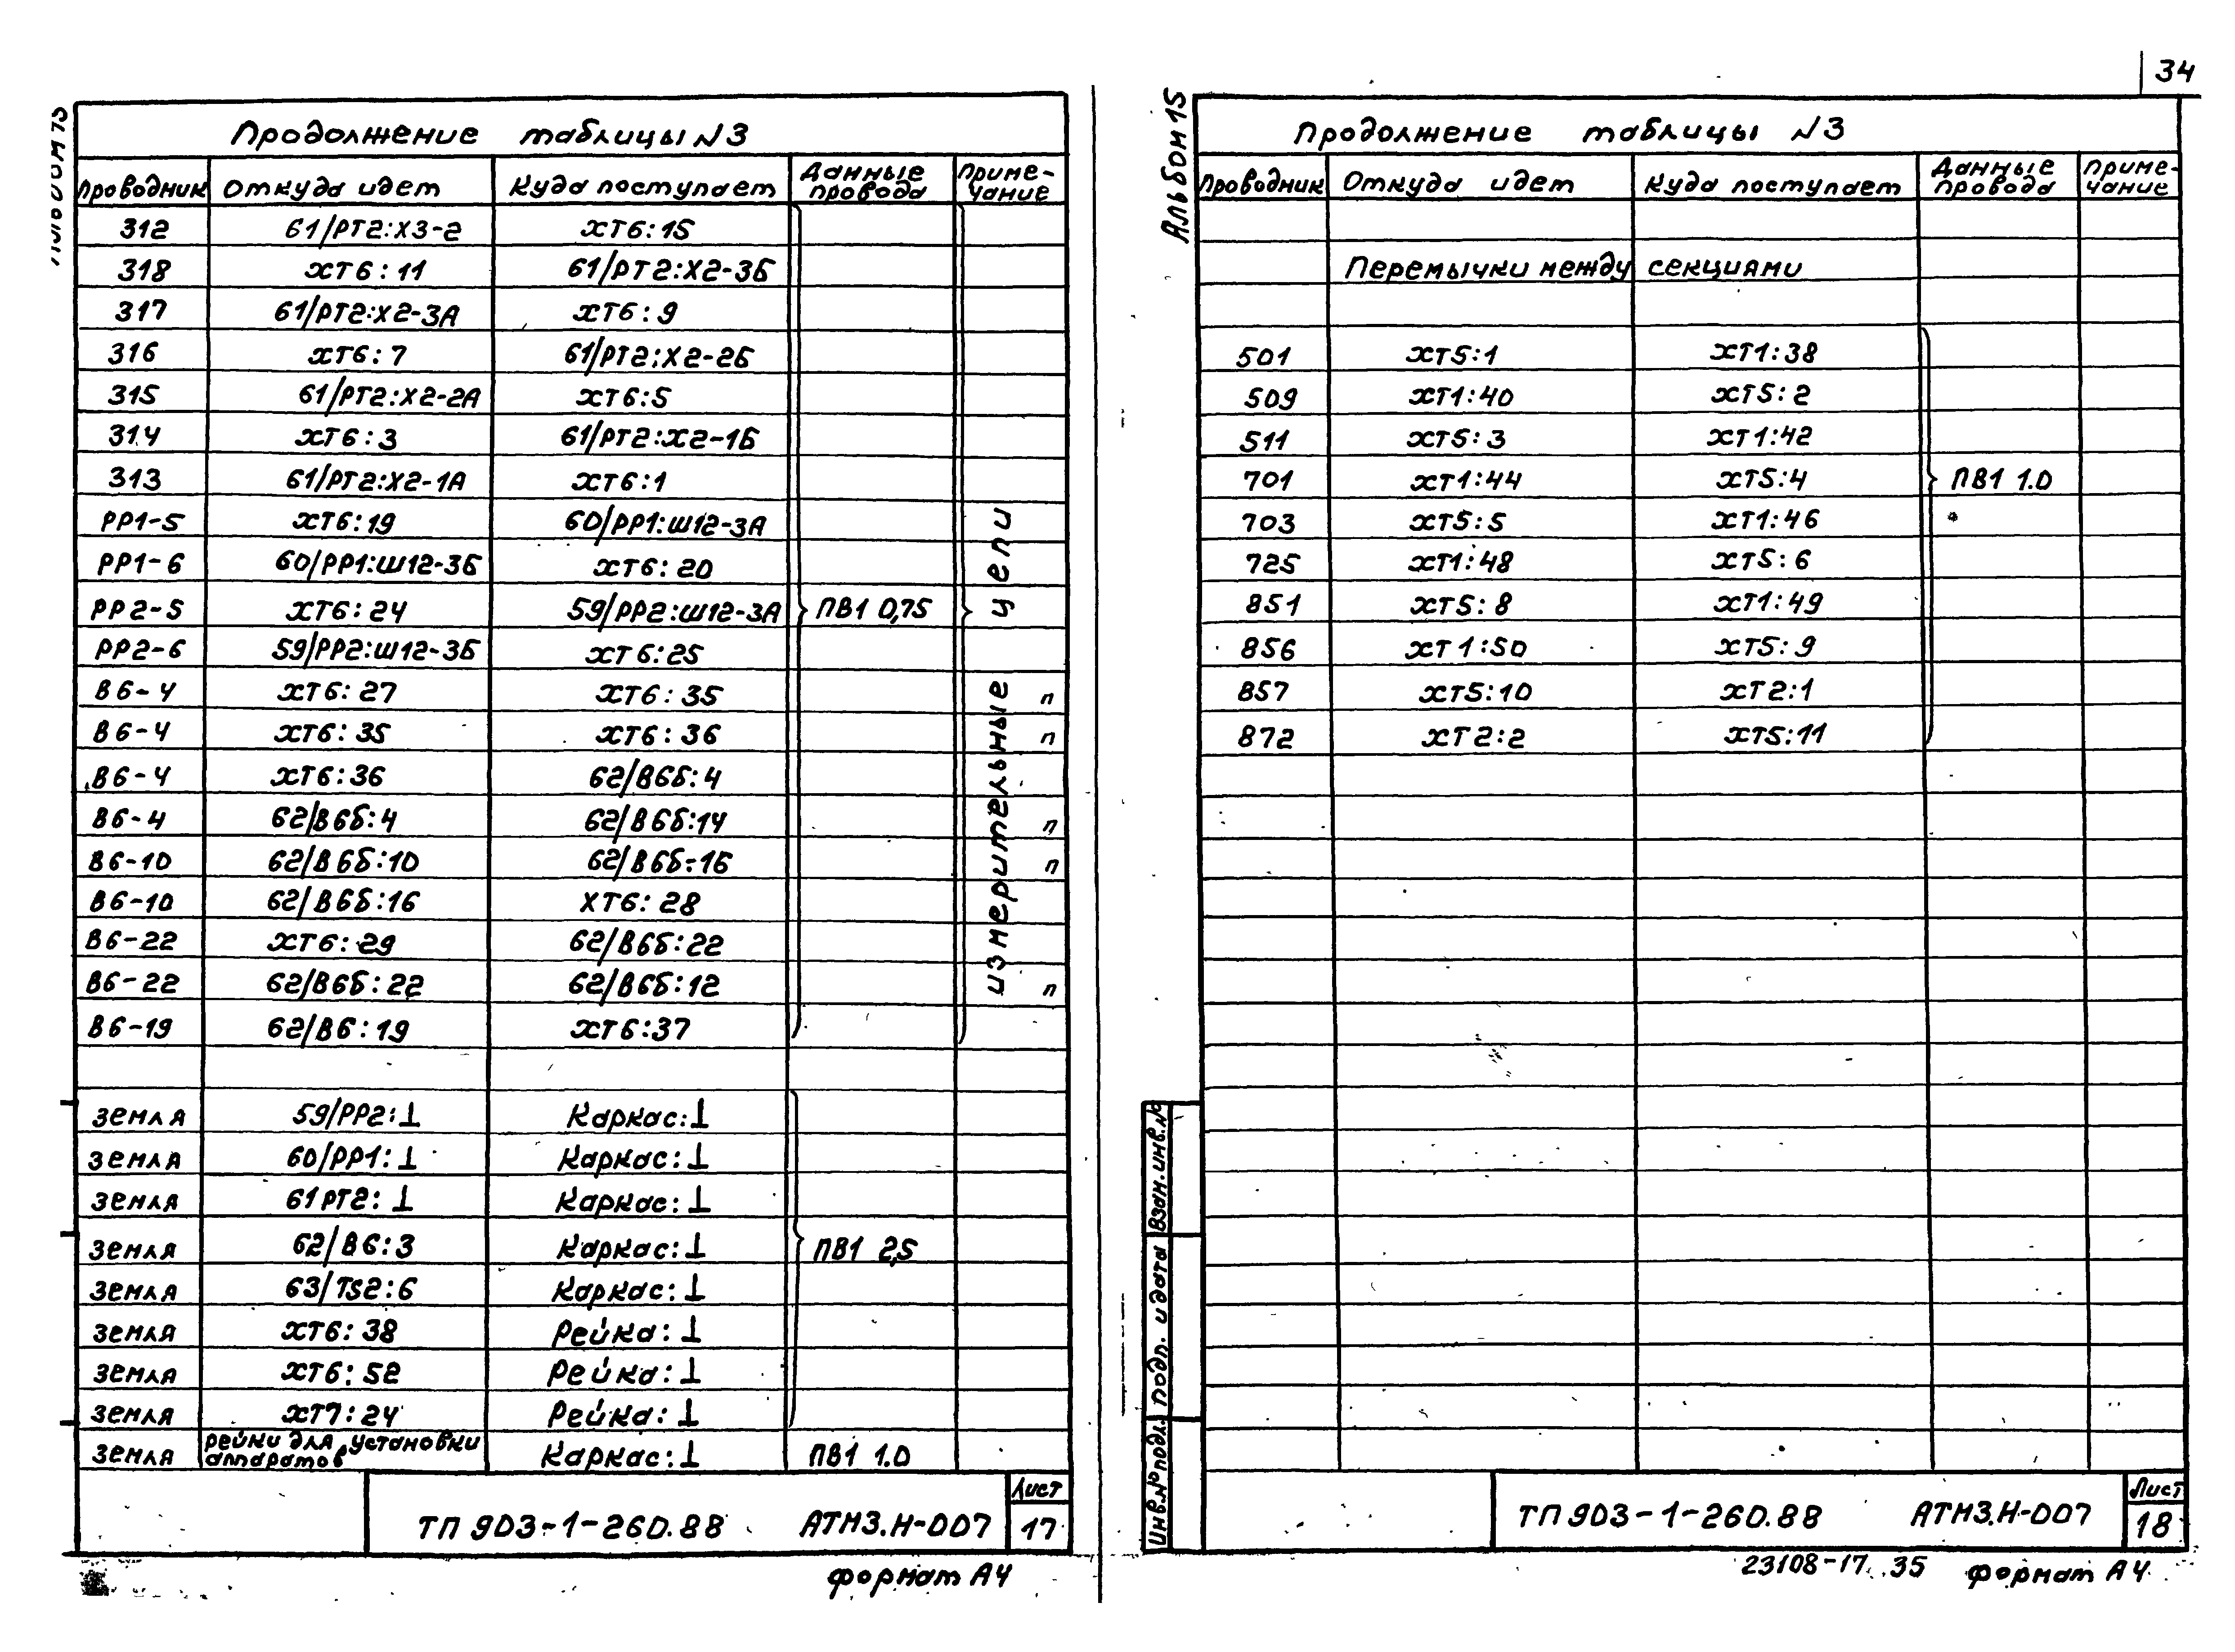 34
Альбом 15
Продолжение таблицы N3
Проводник Откуда идет Куда поступает Данные провода Приме-чание
312 61/РТ2:Х3-2 ХТ6:15
318 ХТ6:11 61/РТ2:Х2-3Б
317 61/РТ2:Х2-3А ХТ6:9
316 ХТ6:7 61/РТ2:Х2-2Б
315 61/РТ2:Х2-2А ХТ6:5
314 ХТ6:3 61/РТ2:Х2-1Б
313 61/РТ2:Х2-1А ХТ6:1
РР1-5 ХТ6:19 60/РР1:Ш12-3А
РР1-6 60/РР1:Ш12-3Б ХТ6:20
РР2-5 ХТ6:24 59/РР2:Ш12-3А ПВ1 0,75 измерительные цепи
РР2-6 59/РР2:Ш12-3Б ХТ6:25
В6-4 ХТ6:27 ХТ6:35 п
В6-4 ХТ6:35 ХТ6:36 п
В6-4 ХТ6:36 62/В6б:4
В6-4 62/В6б:4 62/В6б:14 п
В6-10 62/В6б:10 62/В6б:16 п
В6-10 62/В6б:16 ХТ6:28
В6-22 ХТ6:29 62/В6б:22
В6-22 62/В6б:22 62/В6б:12 п
В6-19 62/В6:19 ХТ6:37
Земля 59/РР2:⊥ Каркас:⊥
Земля 60/РР1:⊥ Каркас:⊥
Земля 61РТ2:⊥ Каркас:⊥
Земля 62/В6:3 Каркас:⊥ ПВ1 2,5
Земля 63/TS2:6 Каркас:⊥
Земля ХТ6:38 Рейка:⊥
Земля ХТ6:52 Рейка:⊥
Земля ХТ7:24 Рейка:⊥
Земля рейки для установки аппаратов Каркас:⊥ ПВ1 1.0
ТП 903-1-260.88 АТМ3.Н-007 Лист 17
Формат А4
Альбом 15
Продолжение таблицы N3
Проводник Откуда идет Куда поступает Данные провода Приме-чание
Перемычки между секциями
501 ХТ5:1 ХТ1:38
509 ХТ1:40 ХТ5:2
511 ХТ5:3 ХТ1:42
701 ХТ1:44 ХТ5:4 ПВ1 1.0
703 ХТ5:5 ХТ1:46
725 ХТ1:48 ХТ5:6
851 ХТ5:8 ХТ1:49
856 ХТ1:50 ХТ5:9
857 ХТ5:10 ХТ2:1
872 ХТ2:2 ХТ5:11
Инв.№ подл. Подп. и дата Взам.инв.№
ТП 903-1-260.88 АТМ3.Н-007 Лист 18
23108-17 35 Формат А4